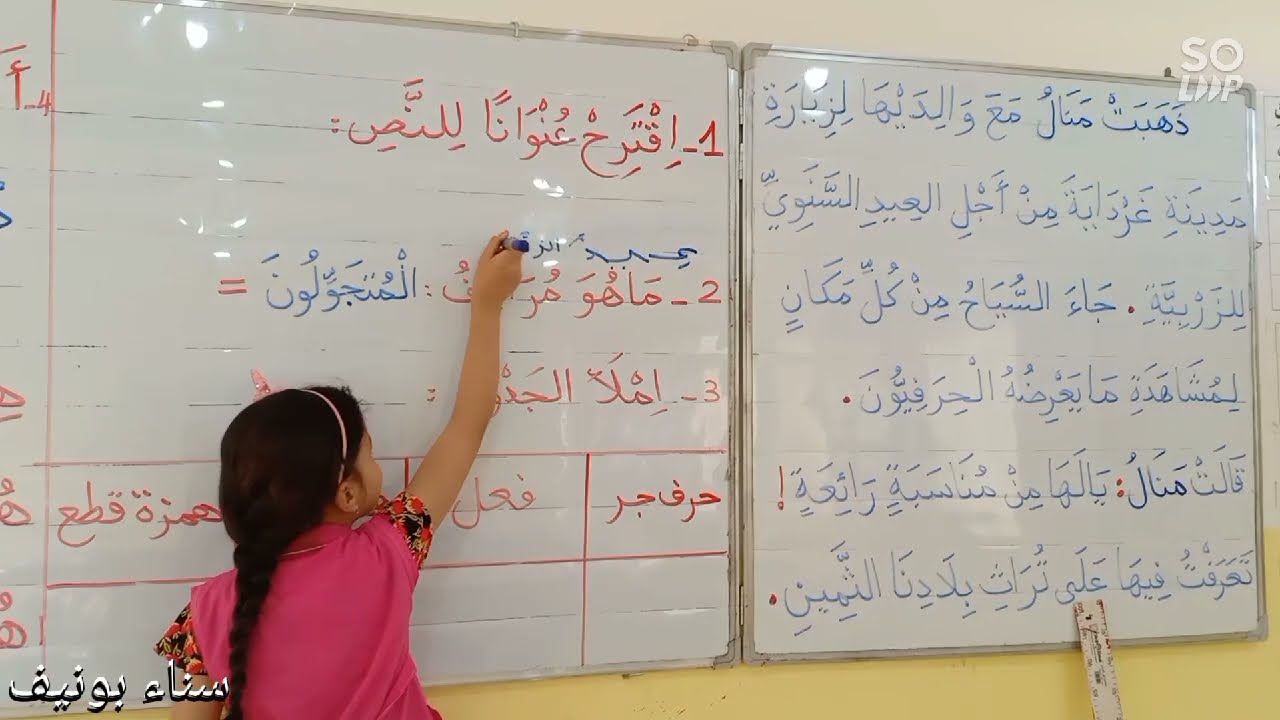 ذَهَبَتْ مَنَالُ مَعَ وَالِدَيْهَا لِزِيَارَةِ
مَدِينَةِ غَرْدَايَةَ مِنْ أَجْلِ العِيدِ السَّنَوِيِّ
لِلزَّرْبِيَّةِ. جَاءَ السُّيَاحُ مِنْ كُلِّ مَكَانٍ
لِمُشَاهَدَةِ مَا يَعْرِضُهُ الْحِرَفِيُّونَ.
قَالَتْ مَنَالُ: يَالَهَا مِنْ مُنَاسَبَةٍ رَائِعَةٍ!
تَعَرَفْتُ فِيهَا عَلَى تُرَاثِ بِلَادِنَا الثَّمِينِ.
1- اِقْتَرِحْ عُنْوَانًا لِلنَّصِ:
2- مَاهُوَ : الْمُتَجَوِّلُونَ =
3- اِمْلَأ الجَدْ :
حرف جر
فعل
همزة قطع
4- أ
سناء بونيف
SO
LOOP